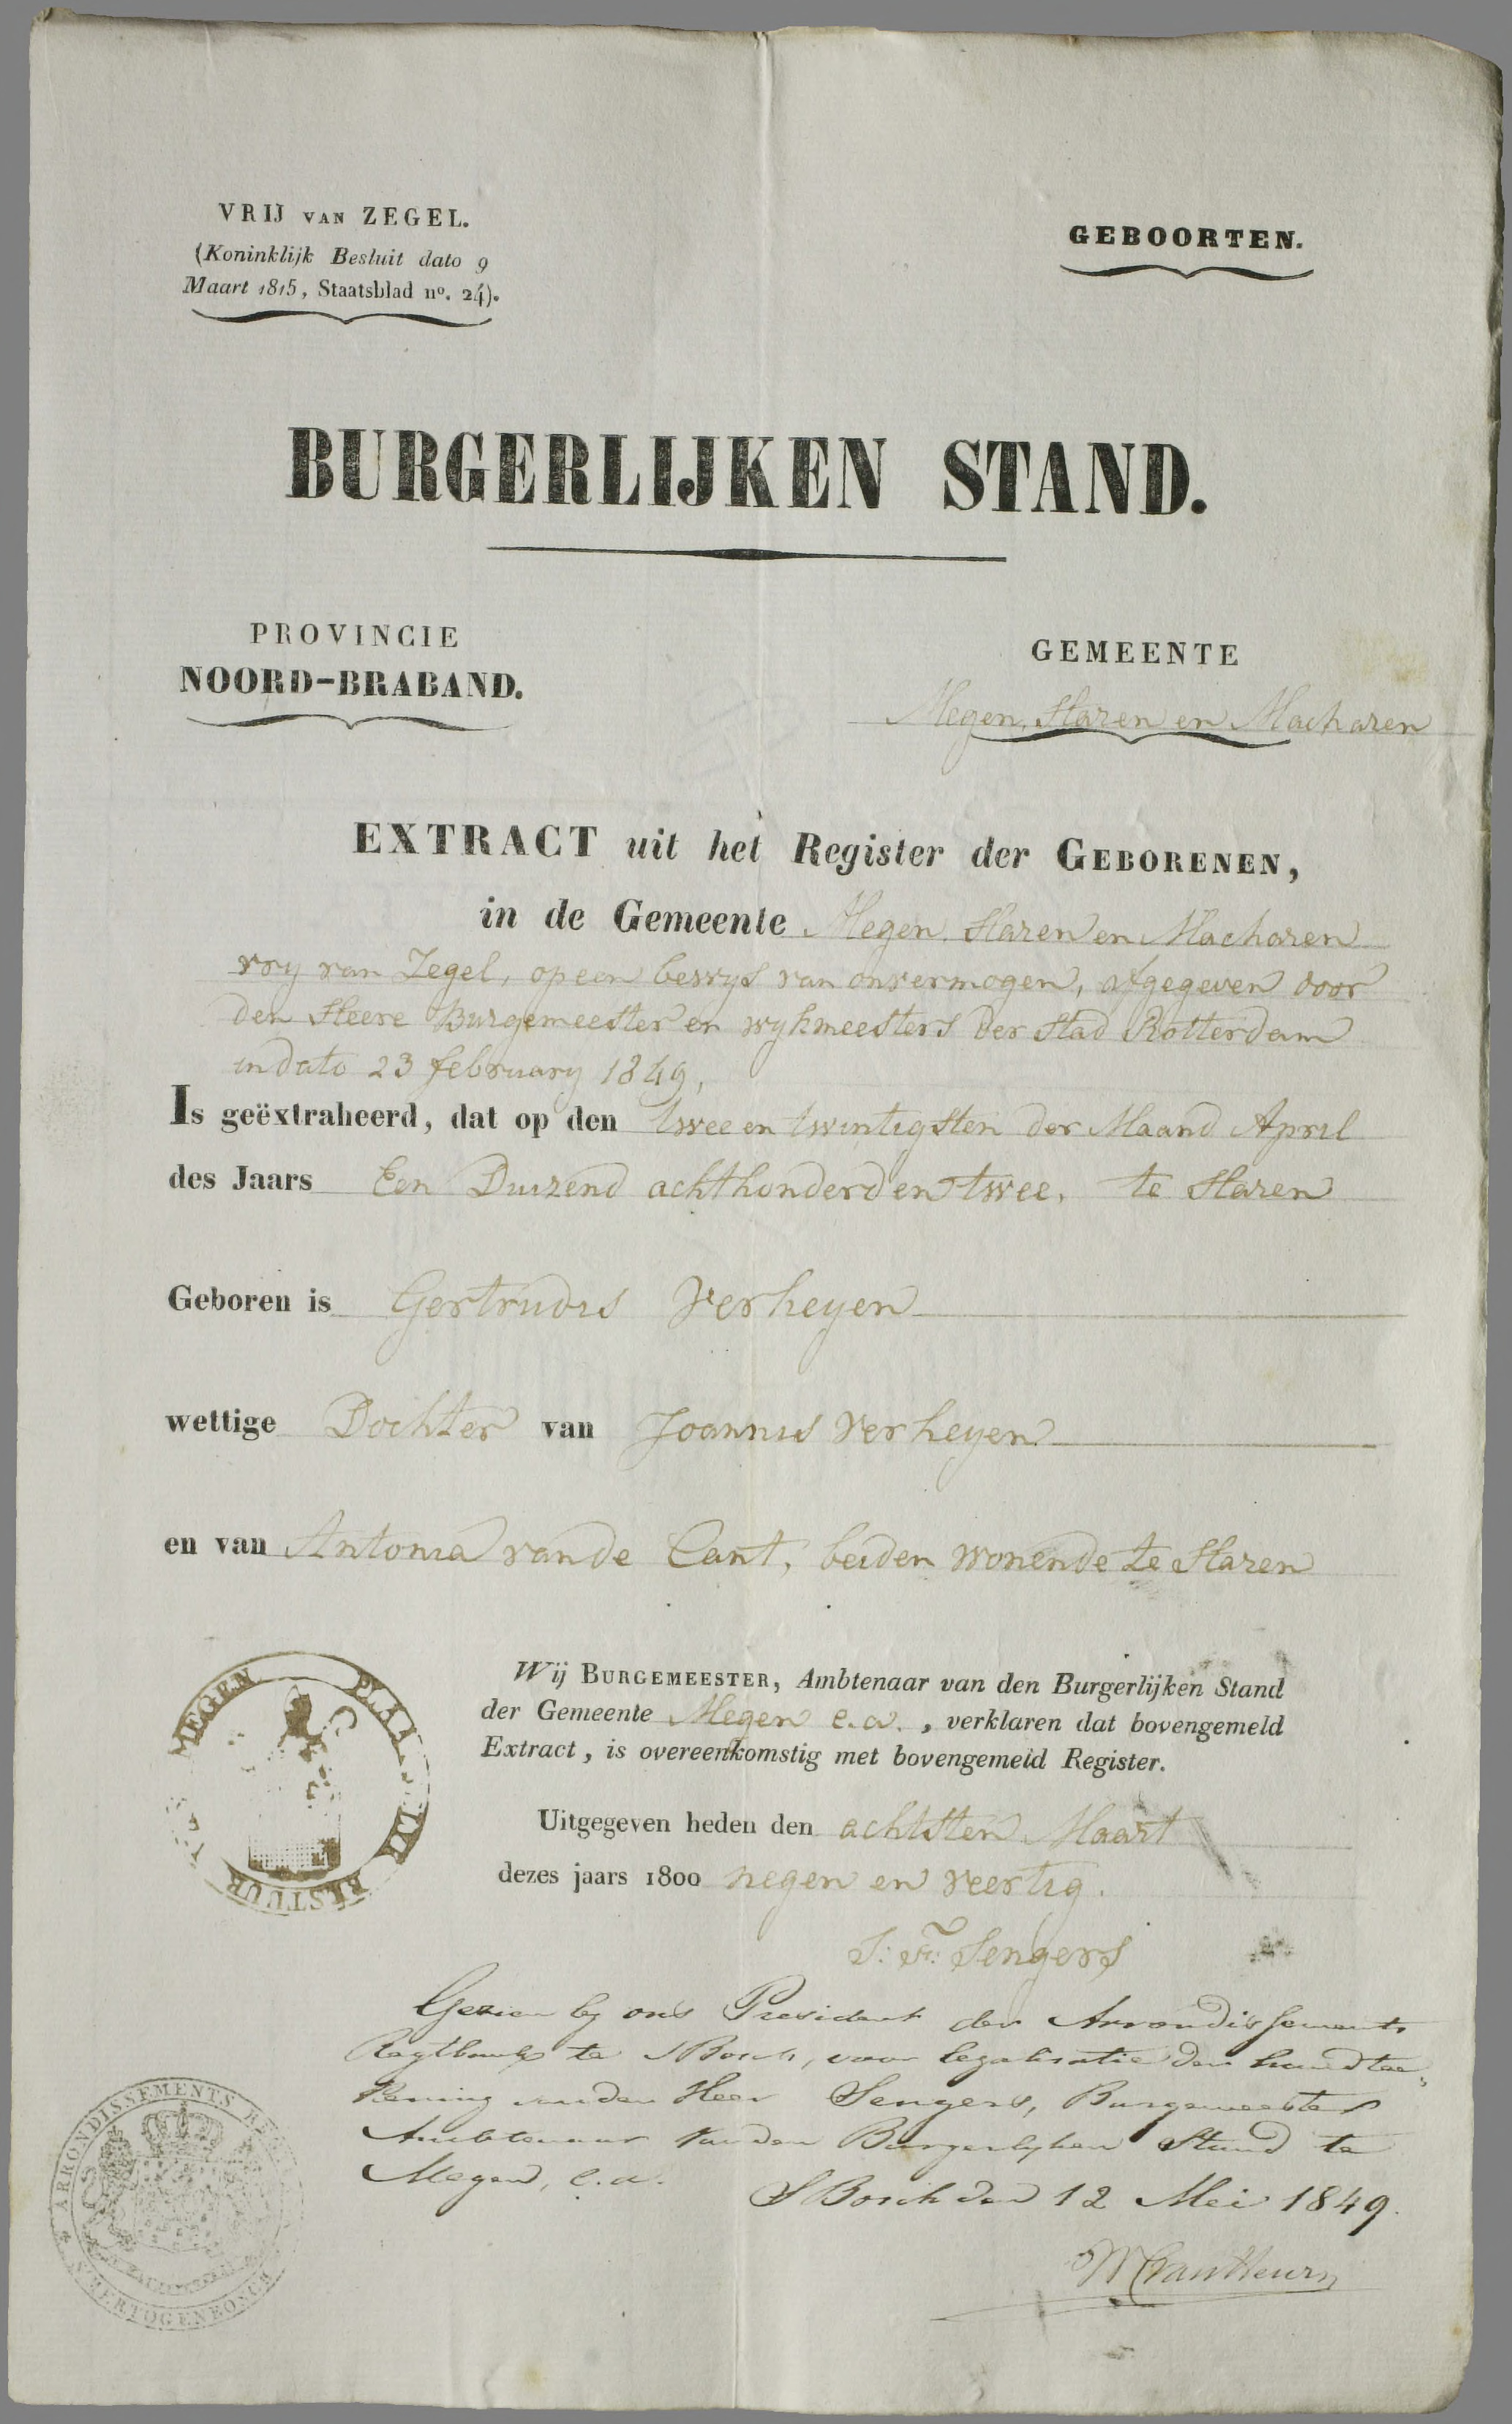 VRIJ VAN ZEGEL.
(Koninklijk Besluit dato 9
Maart 1815, Staatsblad nº. 24).
GEBOORTEN.
BURGERLIJKEN STAND.
PROVINCIE
NOORD-BRABAND.
GEMEENTE
Megen, Haren en Macharen
EXTRACT uit het Register der GEBORENEN,
in de Gemeente Megen, Haren en Macharen
vry van Zegel, op een bewys van onvermogen, afgegeven door
den Heere Burgemeester en wykmeesters der Stad Rotterdam
in dato 23 february 1849,
Is geëxtraheerd, dat op den twee en twintigsten der Maand April
des Jaars Een Duizend achthonderd en twee, te Haren
Geboren is Gertrudis Verheyen
wettige Dochter van Joannis Verheyen
en van Antonia van de Cant, beiden wonende te Haren
Wij BURGEMEESTER, Ambtenaar van den Burgerlijken Stand
der Gemeente Megen e.a., verklaren dat bovengemeld
Extract, is overeenkomstig met bovengemeld Register.
Uitgegeven heden den achtsten Maart
dezes jaars 1800 negen en veertig.
Sengers
MEGEN PLAA BESTUUR
Gezien by ons President der Arrondissements
Regtbank te s'Bosch, voor legalisatie der handtee,
kening van den Heer Sengers, Burgemeester
Ambtenaar van den Burgerlyken Stand te
Megen, e.a.
s'Bosch den 12 Mei 1849.
ARRONDISSEMENTS RE
S'HERTOGENBOSCH